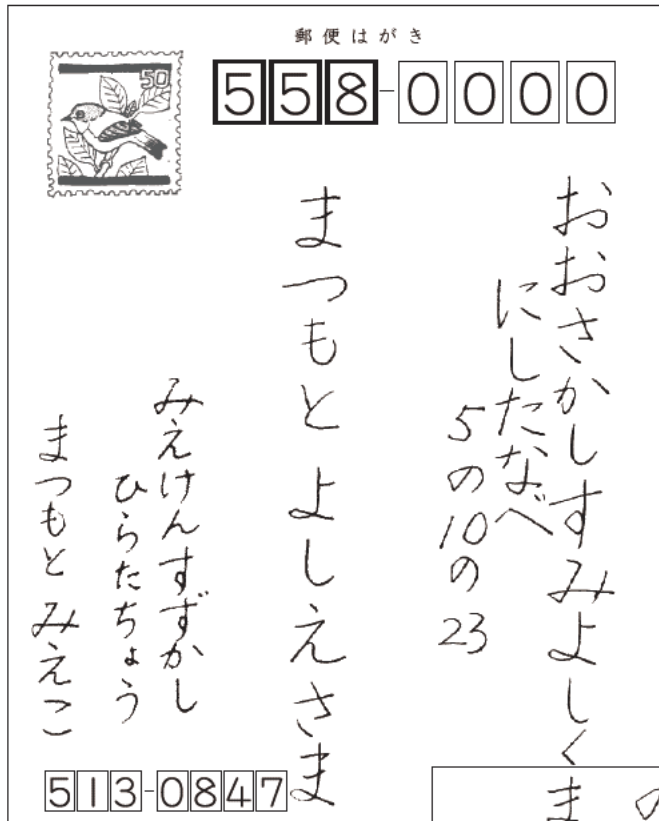 郵便はがき
50
558-0000
おおさかしすみよしくま
にしたなべ
5の10の23
まつもと よしえさま
みえけんすずかし
ひらたちょう
まつもと みえこ
513-0847
の